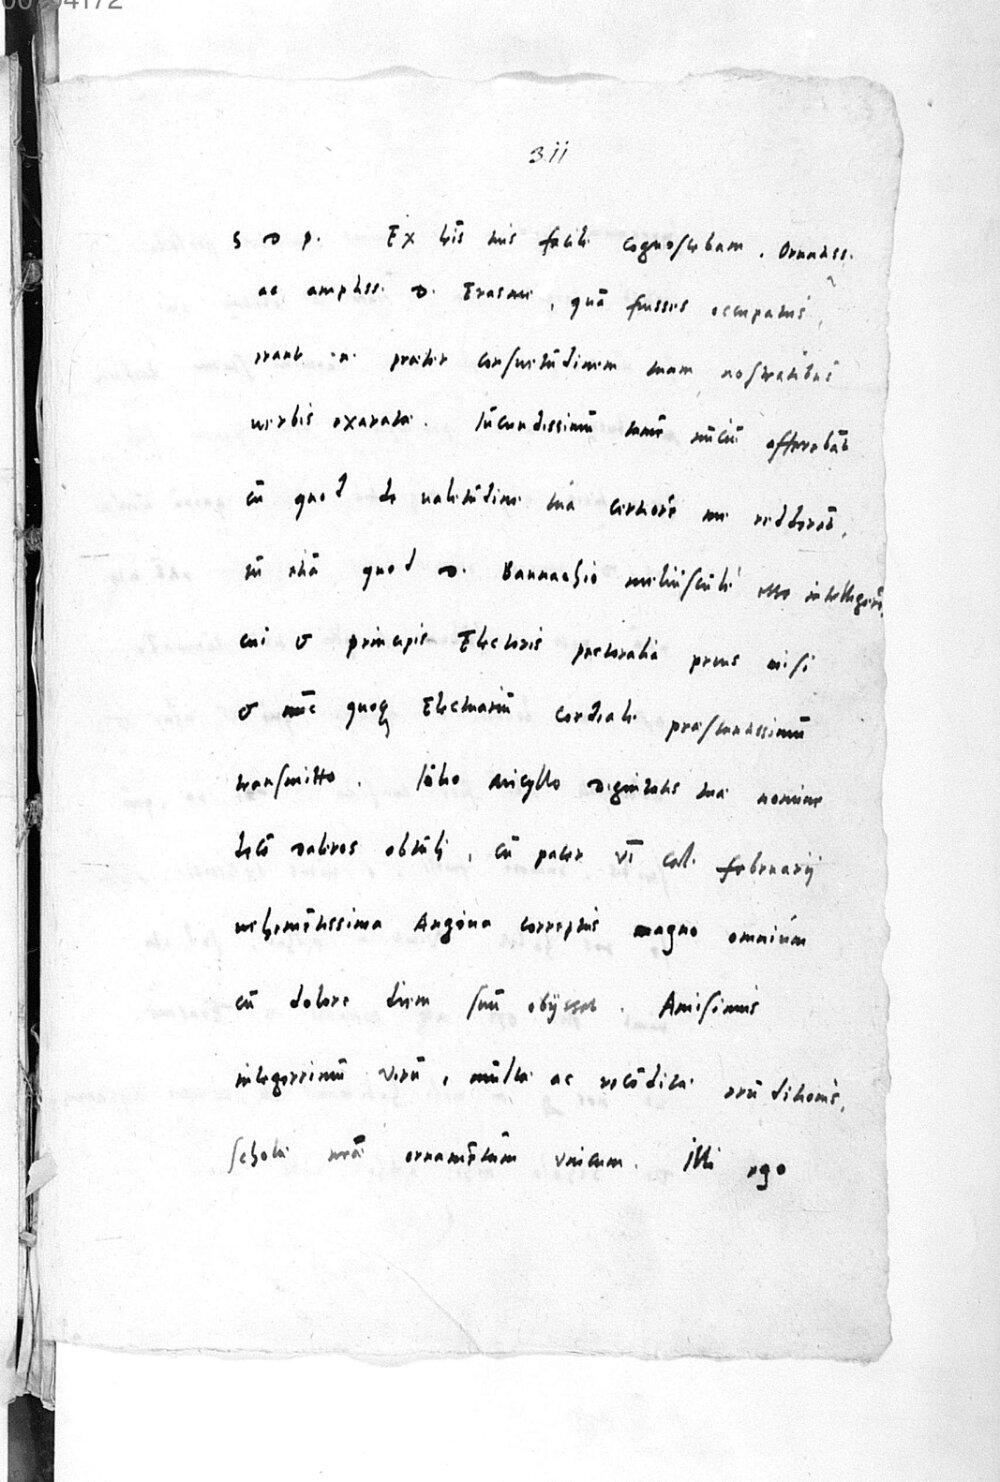 311
S D P. Ex l̄is tuis facile cognoscebam, Ornatiss.
ac ampliss. D. Erasme, quā fuisses occupatus,
erant .n. praeter consuetudinem tuam nostratibus
verbis exarata. Iucundissimū tamē nūciū afferebāt
cū quod de valetudine tua certiorē me redderēt,
tū etiā quod D. Bannachio meliusculè esse intelligerē,
cui & principis Electoris pectoralia prius misi
& nūc quoq Electuariū cordiale praestantissimū
transmitto. Iulio Micyllo Dignitatis tuae nomine
decē daleros obtuli, cū pater VI Cal. februarij
vehemētissima Angina correptus magno omnium
cū dolore diem suū obijsset. Amisimus
integerrimū virū, multae ac recōditae eruditionis,
Scholae nrae ornamētum vnicum. Illi ego